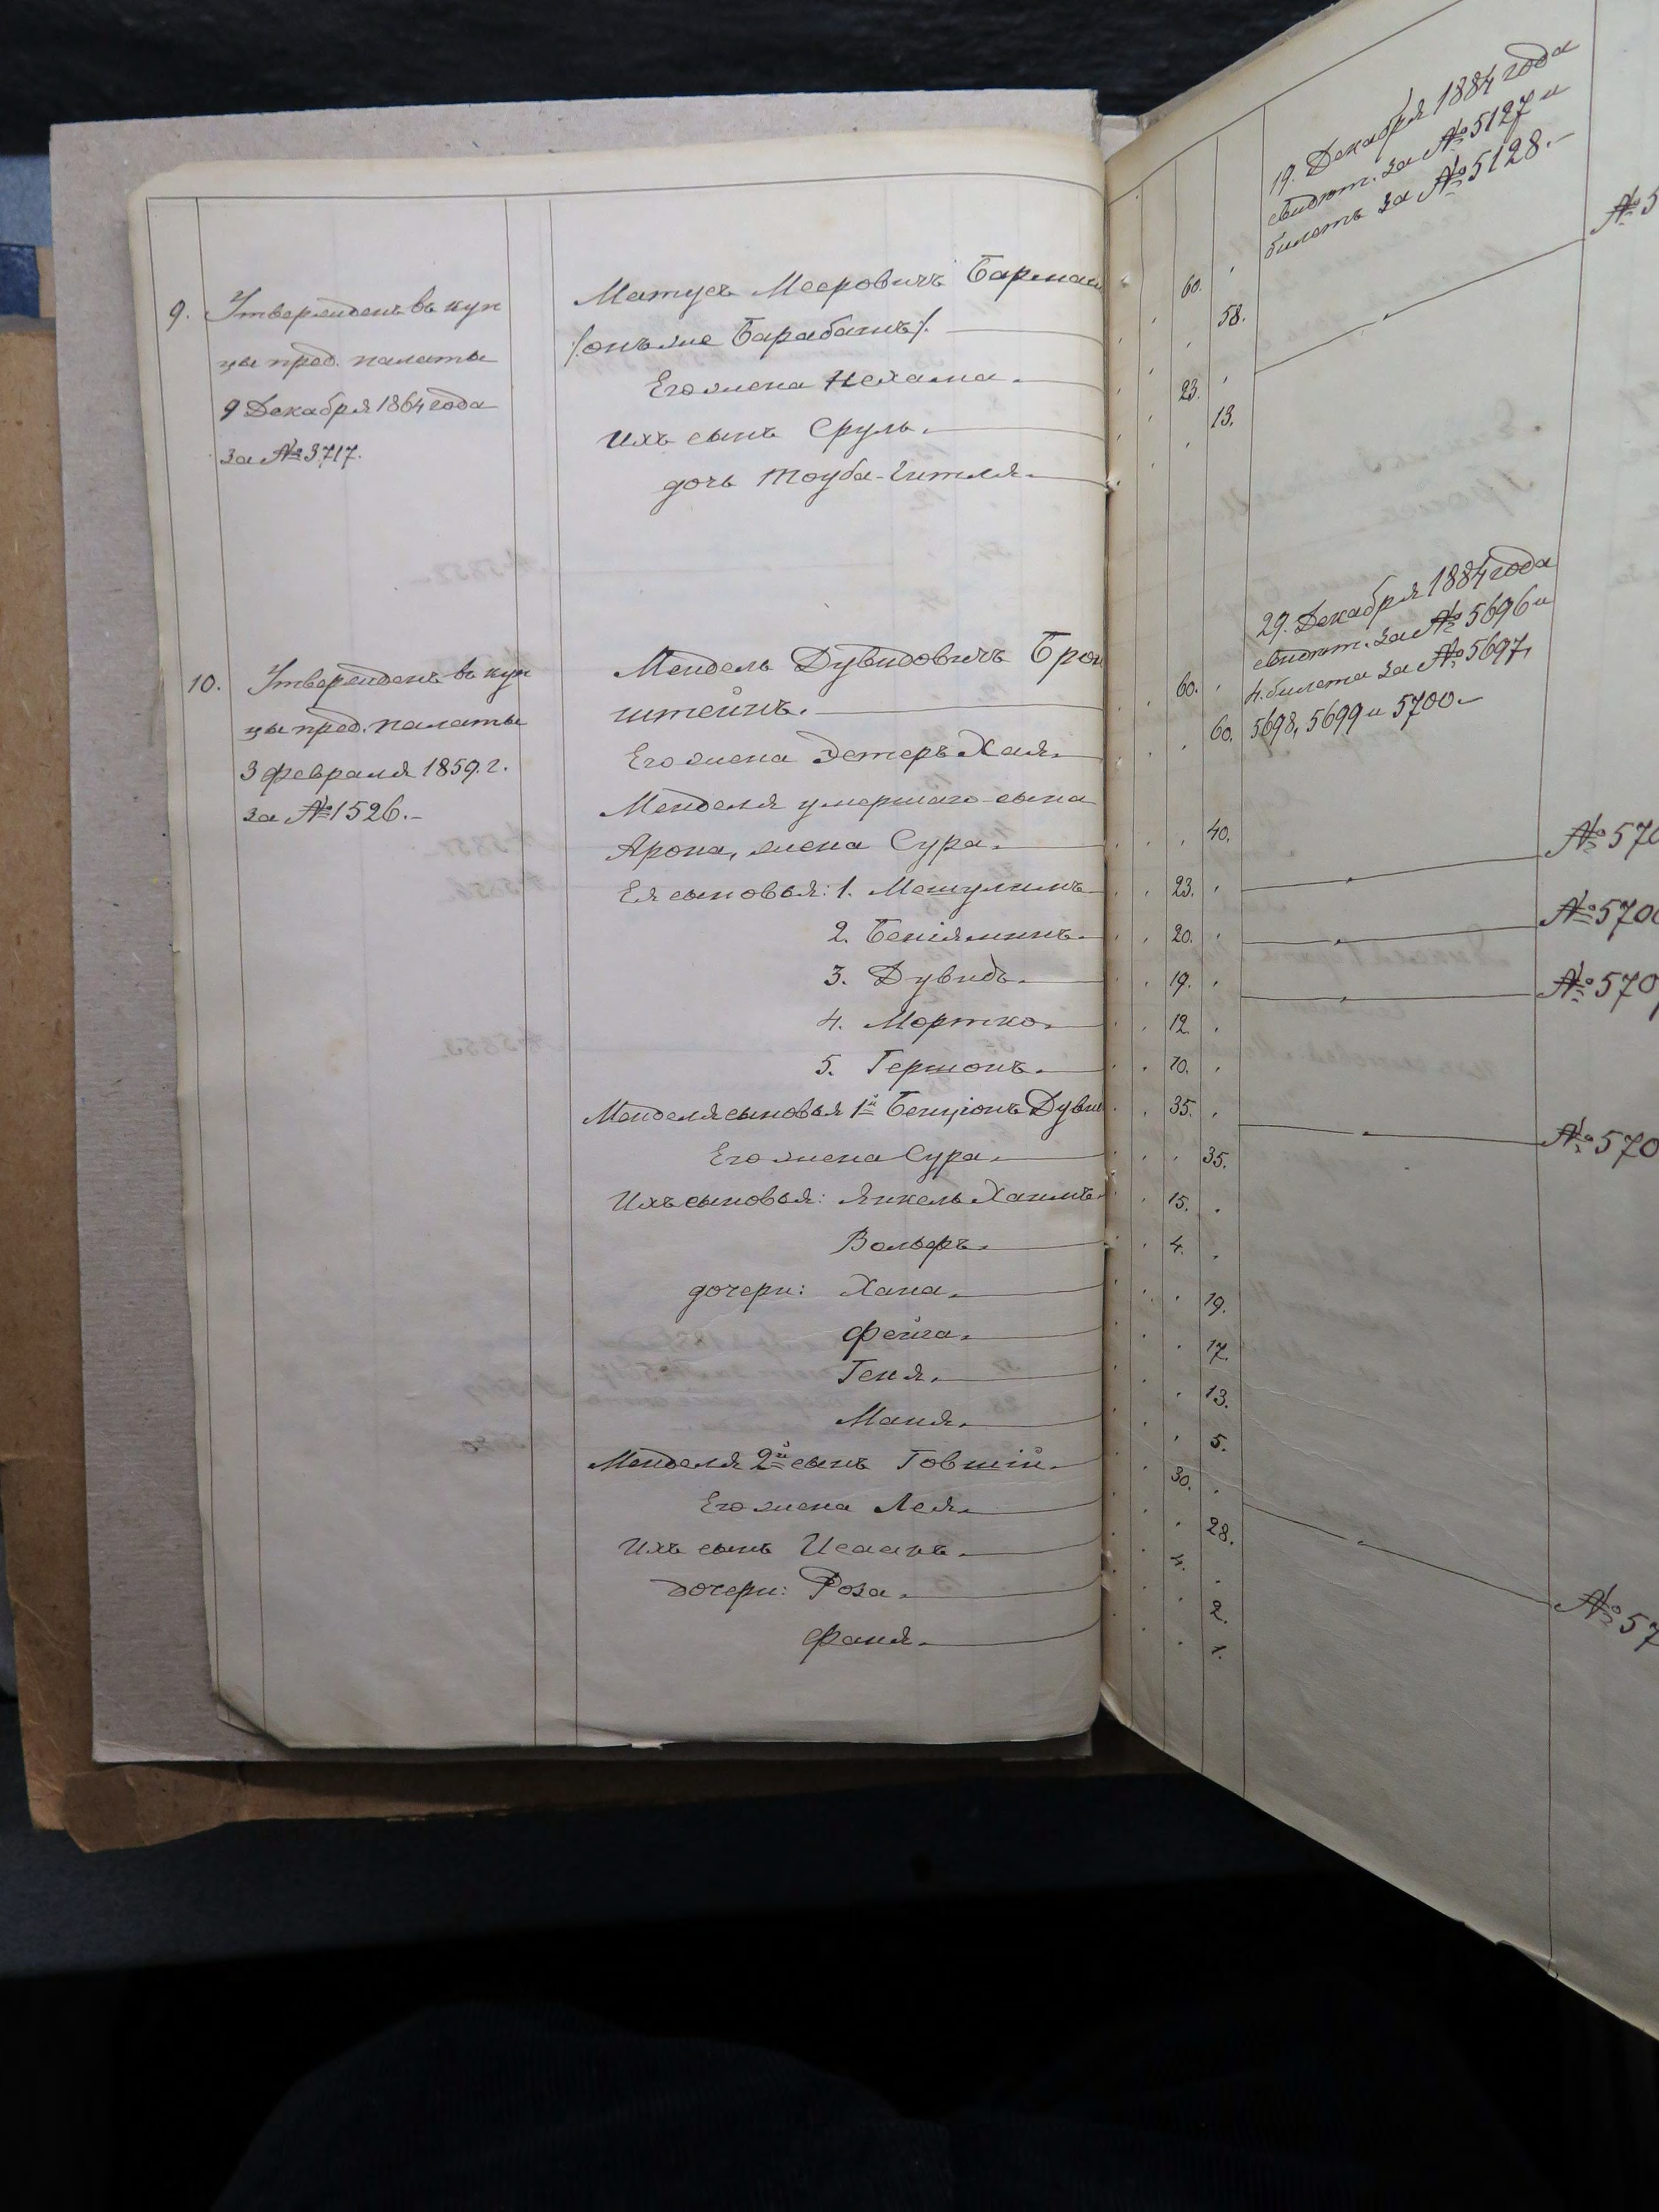 9. Утвержденъ въ куп
цы пред. палаты
9 Декабря 1864 года
за № 3717.
Матусъ Мееровичъ Барман
/онъ же Барабашъ/.
Его жена Нехама.
Ихъ сынъ Сруль.
дочь Тоуба-Гитля.
60.
58.
23.
13.
19. Декабря 1884 года
свидѣт. за № 5127 и
билетъ за № 5128.
№ 5
10. Утвержденъ въ куп
цы пред. палаты
3 февраля 1859. г.
за № 1526.
Мендель Дувидовичъ Брон
штейнъ. 60.
Его жена Эстеръ Хая. 60.
Менделя умершаго сына
Арона, жена Сура. 40.
Ея сыновья: 1. Мешулимъ 23.
2. Беніяминъ. 20.
3. Дувидъ. 19.
4. Мортко. 12.
5. Гершонъ. 10.
Менделя сыновья 1й Бенціонъ Дуви 35.
Его жена Сура. 35.
Ихъ сыновья: Янкель Хаимъ 15.
Вольфъ. 4.
дочери: Хана. 19.
Фейга. 17.
Геня. 13.
Маня. 5.
Менделя 2й сынъ Говшій. 30.
Его жена Лея. 28.
Ихъ сынъ Исаакъ. 4.
дочери: Роза. 2.
Фаня. 1.
29. Декабря 1884 года
свидѣт. за № 5696 и
4. билета за № 5697,
5698, 5699 и 5700.
№ 570
№ 570
№ 570
№ 570
№ 57